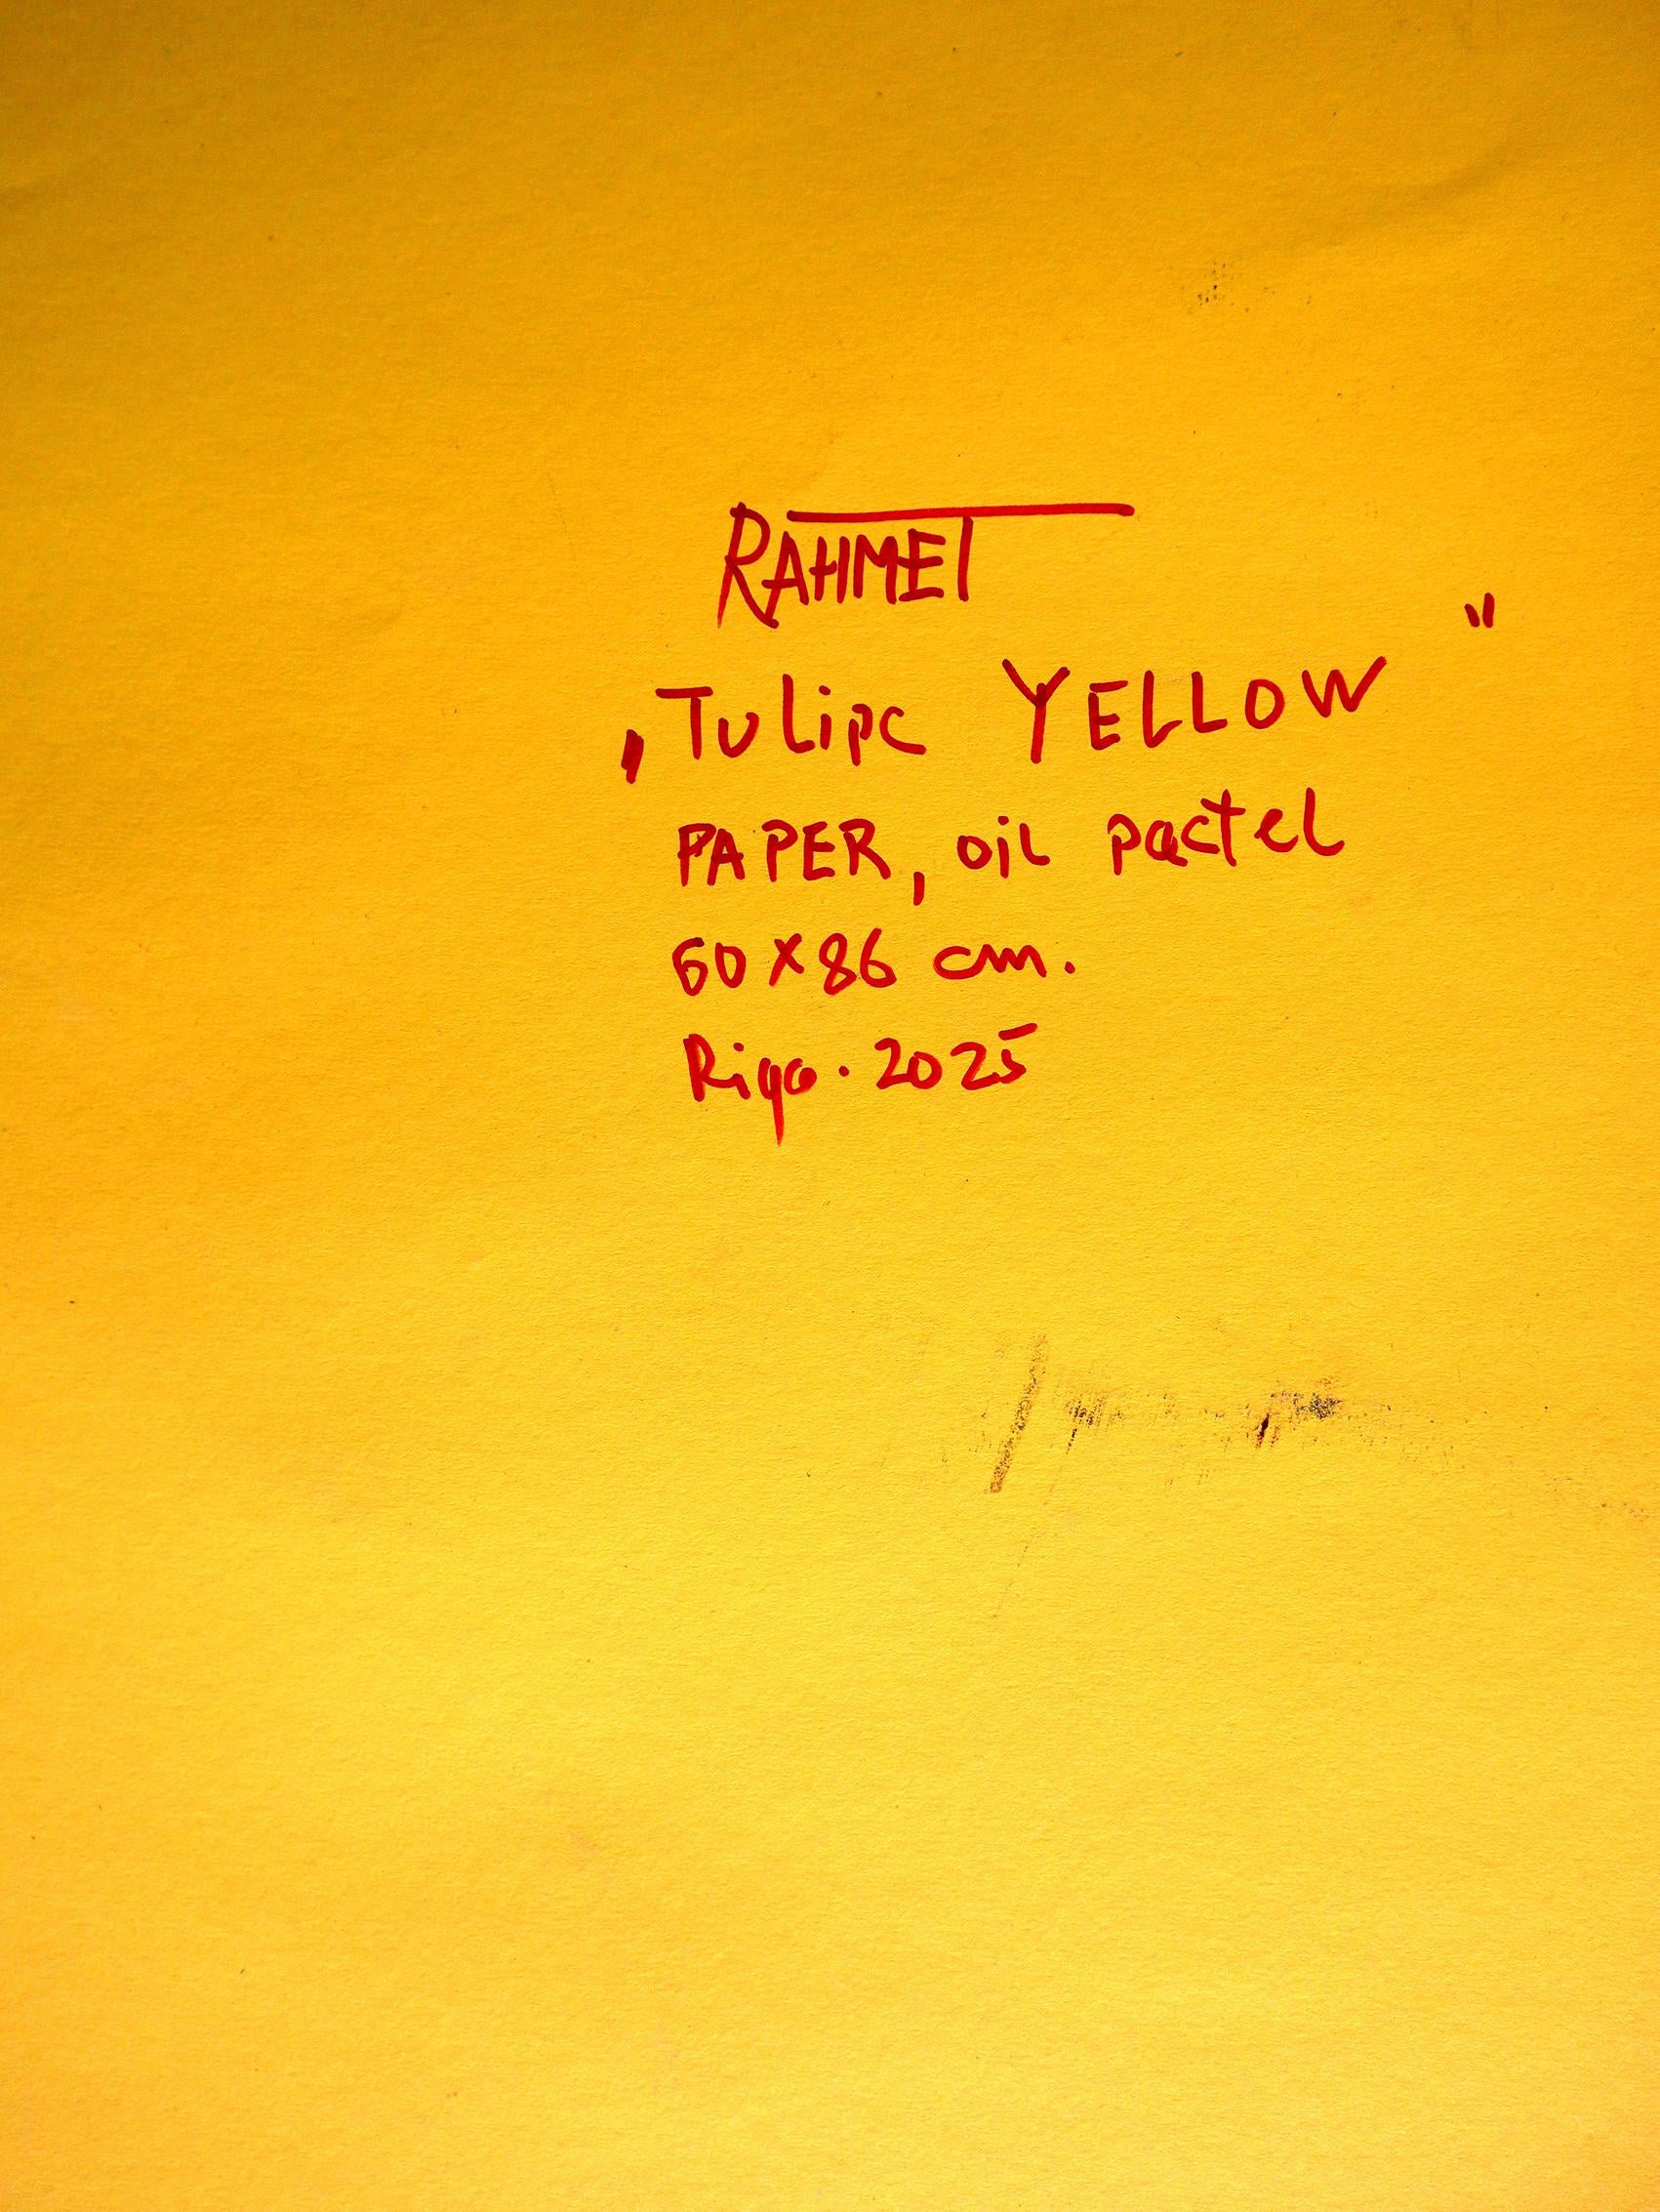 RAHMET
„Tulips YELLOW"
PAPER, oil pastel
60x86 cm.
Riga. 2025